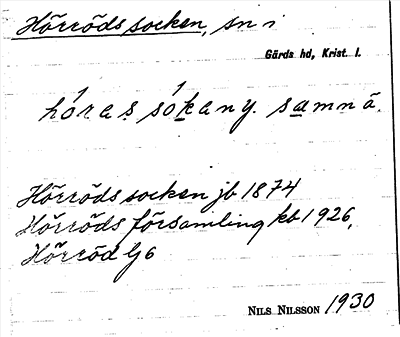 Hörröds socken, sn i
Gärds hd, Krist. l.
hö́ras sókany. samnä.
Hörröds socken jb 1874
Hörröds församling kb 1926,
Hörröd Gj 6
NILS NILSSON 1930